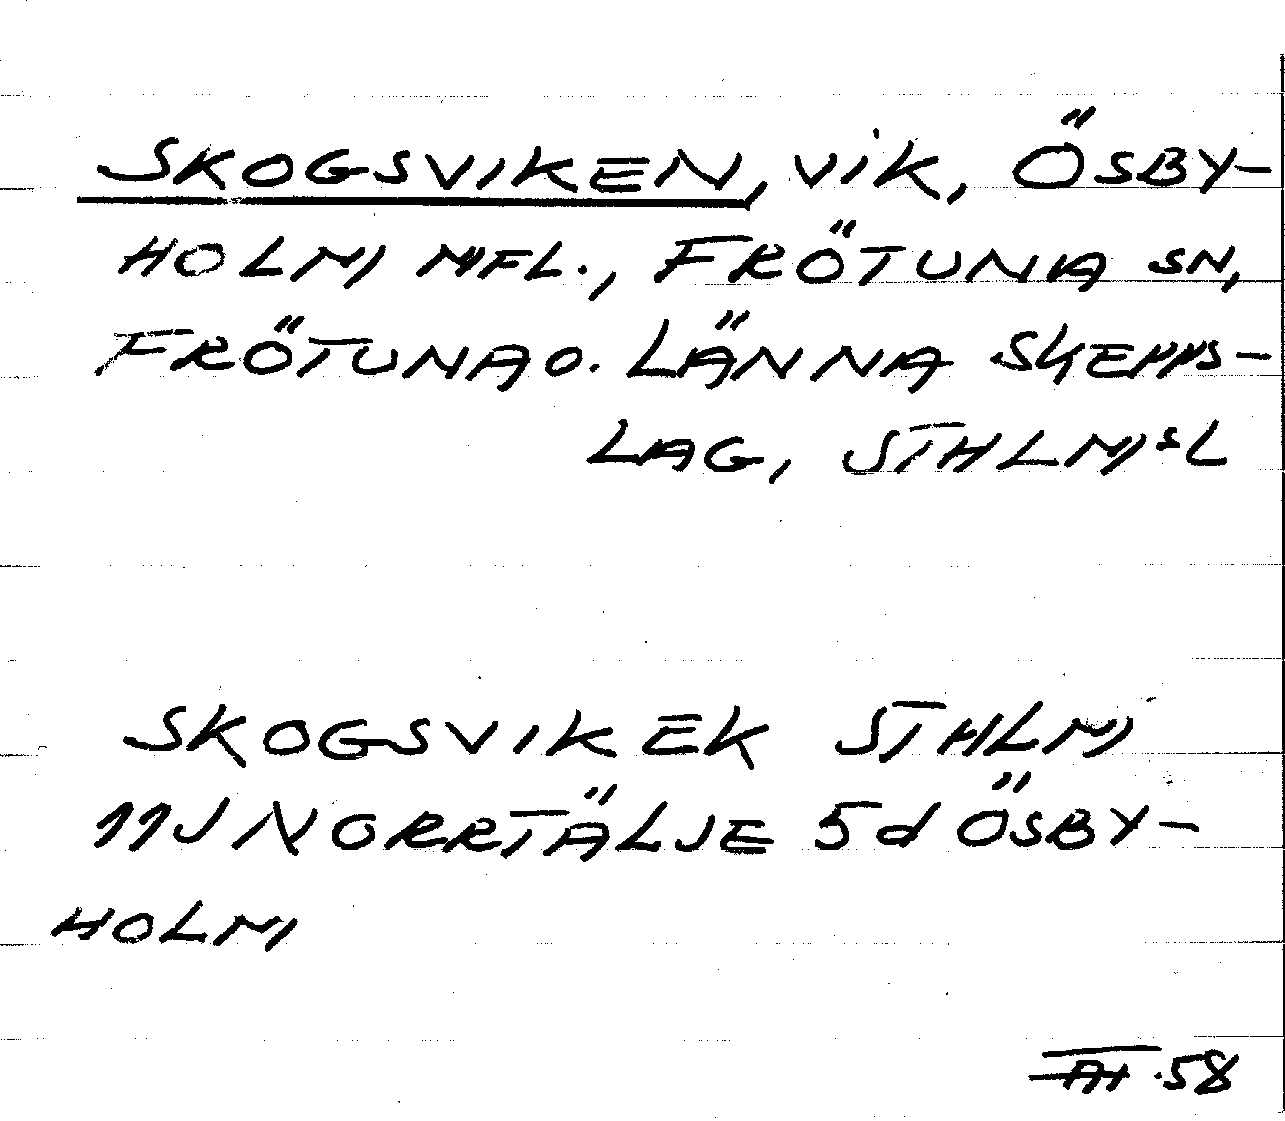 SKOGSVIKEN, VIK, ÖSBY-
HOLM MFL., FRÖTUNA SN,
FRÖTUNA O. LÄNNA SKEPPS-
LAG, STHLMSL
SKOGSVIK EK STHLM
11J NORRTÄLJE 5d ÖSBY-
HOLM
58